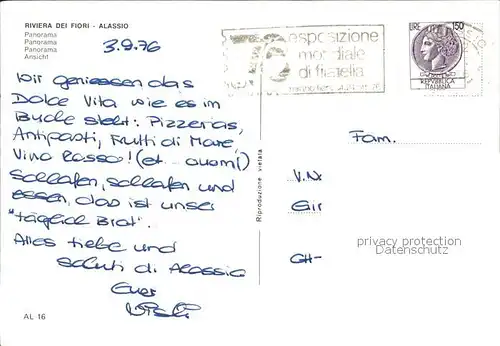 RIVIERA DEI FIORI - ALASSIO
Panorama
Panorama
Panorama
Ansicht
3.9.76
76 esposizione
mondiale
di filatelia
LIRE 150
REPUBBLICA
ITALIANA
Wir geniessen das
Dolce Vita wie es im
Buche steht: Pizzerias,
Antipasti, Frutti di Mare,
Vino Rosso! (et.. quomi)
Schlafen, schlafen und
essen, das ist unser
"täglich Brot".
Alles liebe und
saluti di Alassio
Euer
Riproduzione vietata
Fam.
V.N
Gir
CH-
privacy protection
Datenschutz
AL 16